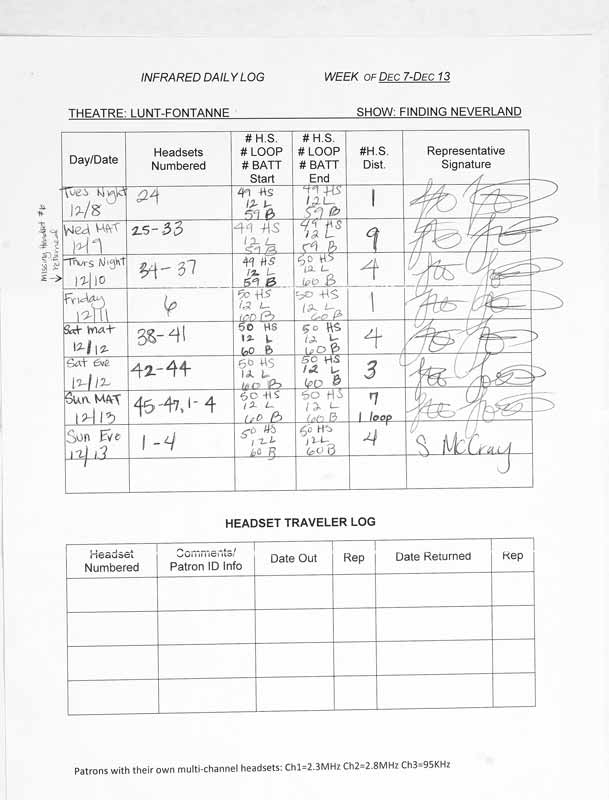 INFRARED DAILY LOG WEEK OF DEC 7-DEC 13
THEATRE: LUNT-FONTANNE SHOW: FINDING NEVERLAND
Day/Date Headsets Numbered # H.S. # LOOP # BATT Start # H.S. # LOOP # BATT End #H.S. Dist. Representative Signature
missing headset #6 returned
Tues Night 12/8 24 49 HS 12 L 59 B 49 HS 12 L 59 B 1
Wed MAT 12/9 25-33 49 HS 12 L 59 B 49 HS 12 L 59 B 9
Thurs Night 12/10 34-37 49 HS 12 L 59 B 50 HS 12 L 60 B 4
Friday 12/11 6 50 HS 12 L 60 B 50 HS 12 L 60 B 1
Sat mat 12/12 38-41 50 HS 12 L 60 B 50 HS 12 L 60 B 4
Sat Eve 12/12 42-44 50 HS 12 L 60 B 50 HS 12 L 60 B 3
Sun MAT 12/13 45-47, 1-4 50 HS 12 L 60 B 50 HS 12 L 60 B 7 1 loop
Sun Eve 12/13 1-4 50 HS 12 L 60 B 50 HS 12 L 60 B 4 S McCray
HEADSET TRAVELER LOG
Headset Numbered Comments/ Patron ID Info Date Out Rep Date Returned Rep
Patrons with their own multi-channel headsets: Ch1=2.3MHz Ch2=2.8MHz Ch3=95KHz